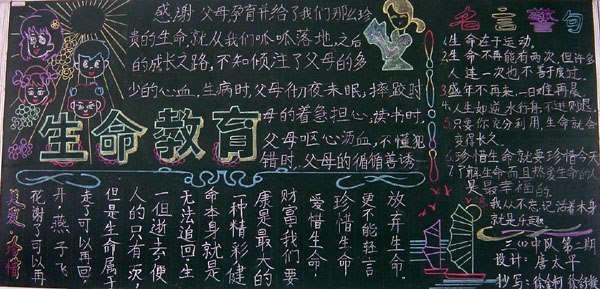 感谢父母孕育并给了我们那么珍
贵的生命,就从我们呱呱落地,之后
的成长之路,不知倾注了父母的多
少的心血,生病时父母彻夜未眠,摔跤时
母的着急担心;读书时,
父母呕心沥血,不懂犯
错时,父母的循循善诱
生命教育
名言警句
1.生命在于运动。
2.生命不再能有两次,但许多
人连一次也不善于度过。
3.盛年不再来,一日难再晨。
4.人生如逆水行舟,不进则退。
5.只要你充分利用,生命就会
变得长久。
6.珍惜生命就要珍惜今天
7.了解生命而且热爱生命的人
是最幸福的。
8.我从不忘记活着本身
就是乐趣
花谢了可以再
开,燕子飞
走了可以再回,
但是生命属于
人的只有一次,
一但逝去便
无法追回,生
命本身就是
一种精彩,健
康是最大的
财富,我们要
爱惜生命
珍惜生命
更不能轻言
放弃生命。
三(1)中队 第二期
设计:唐太平
抄写: